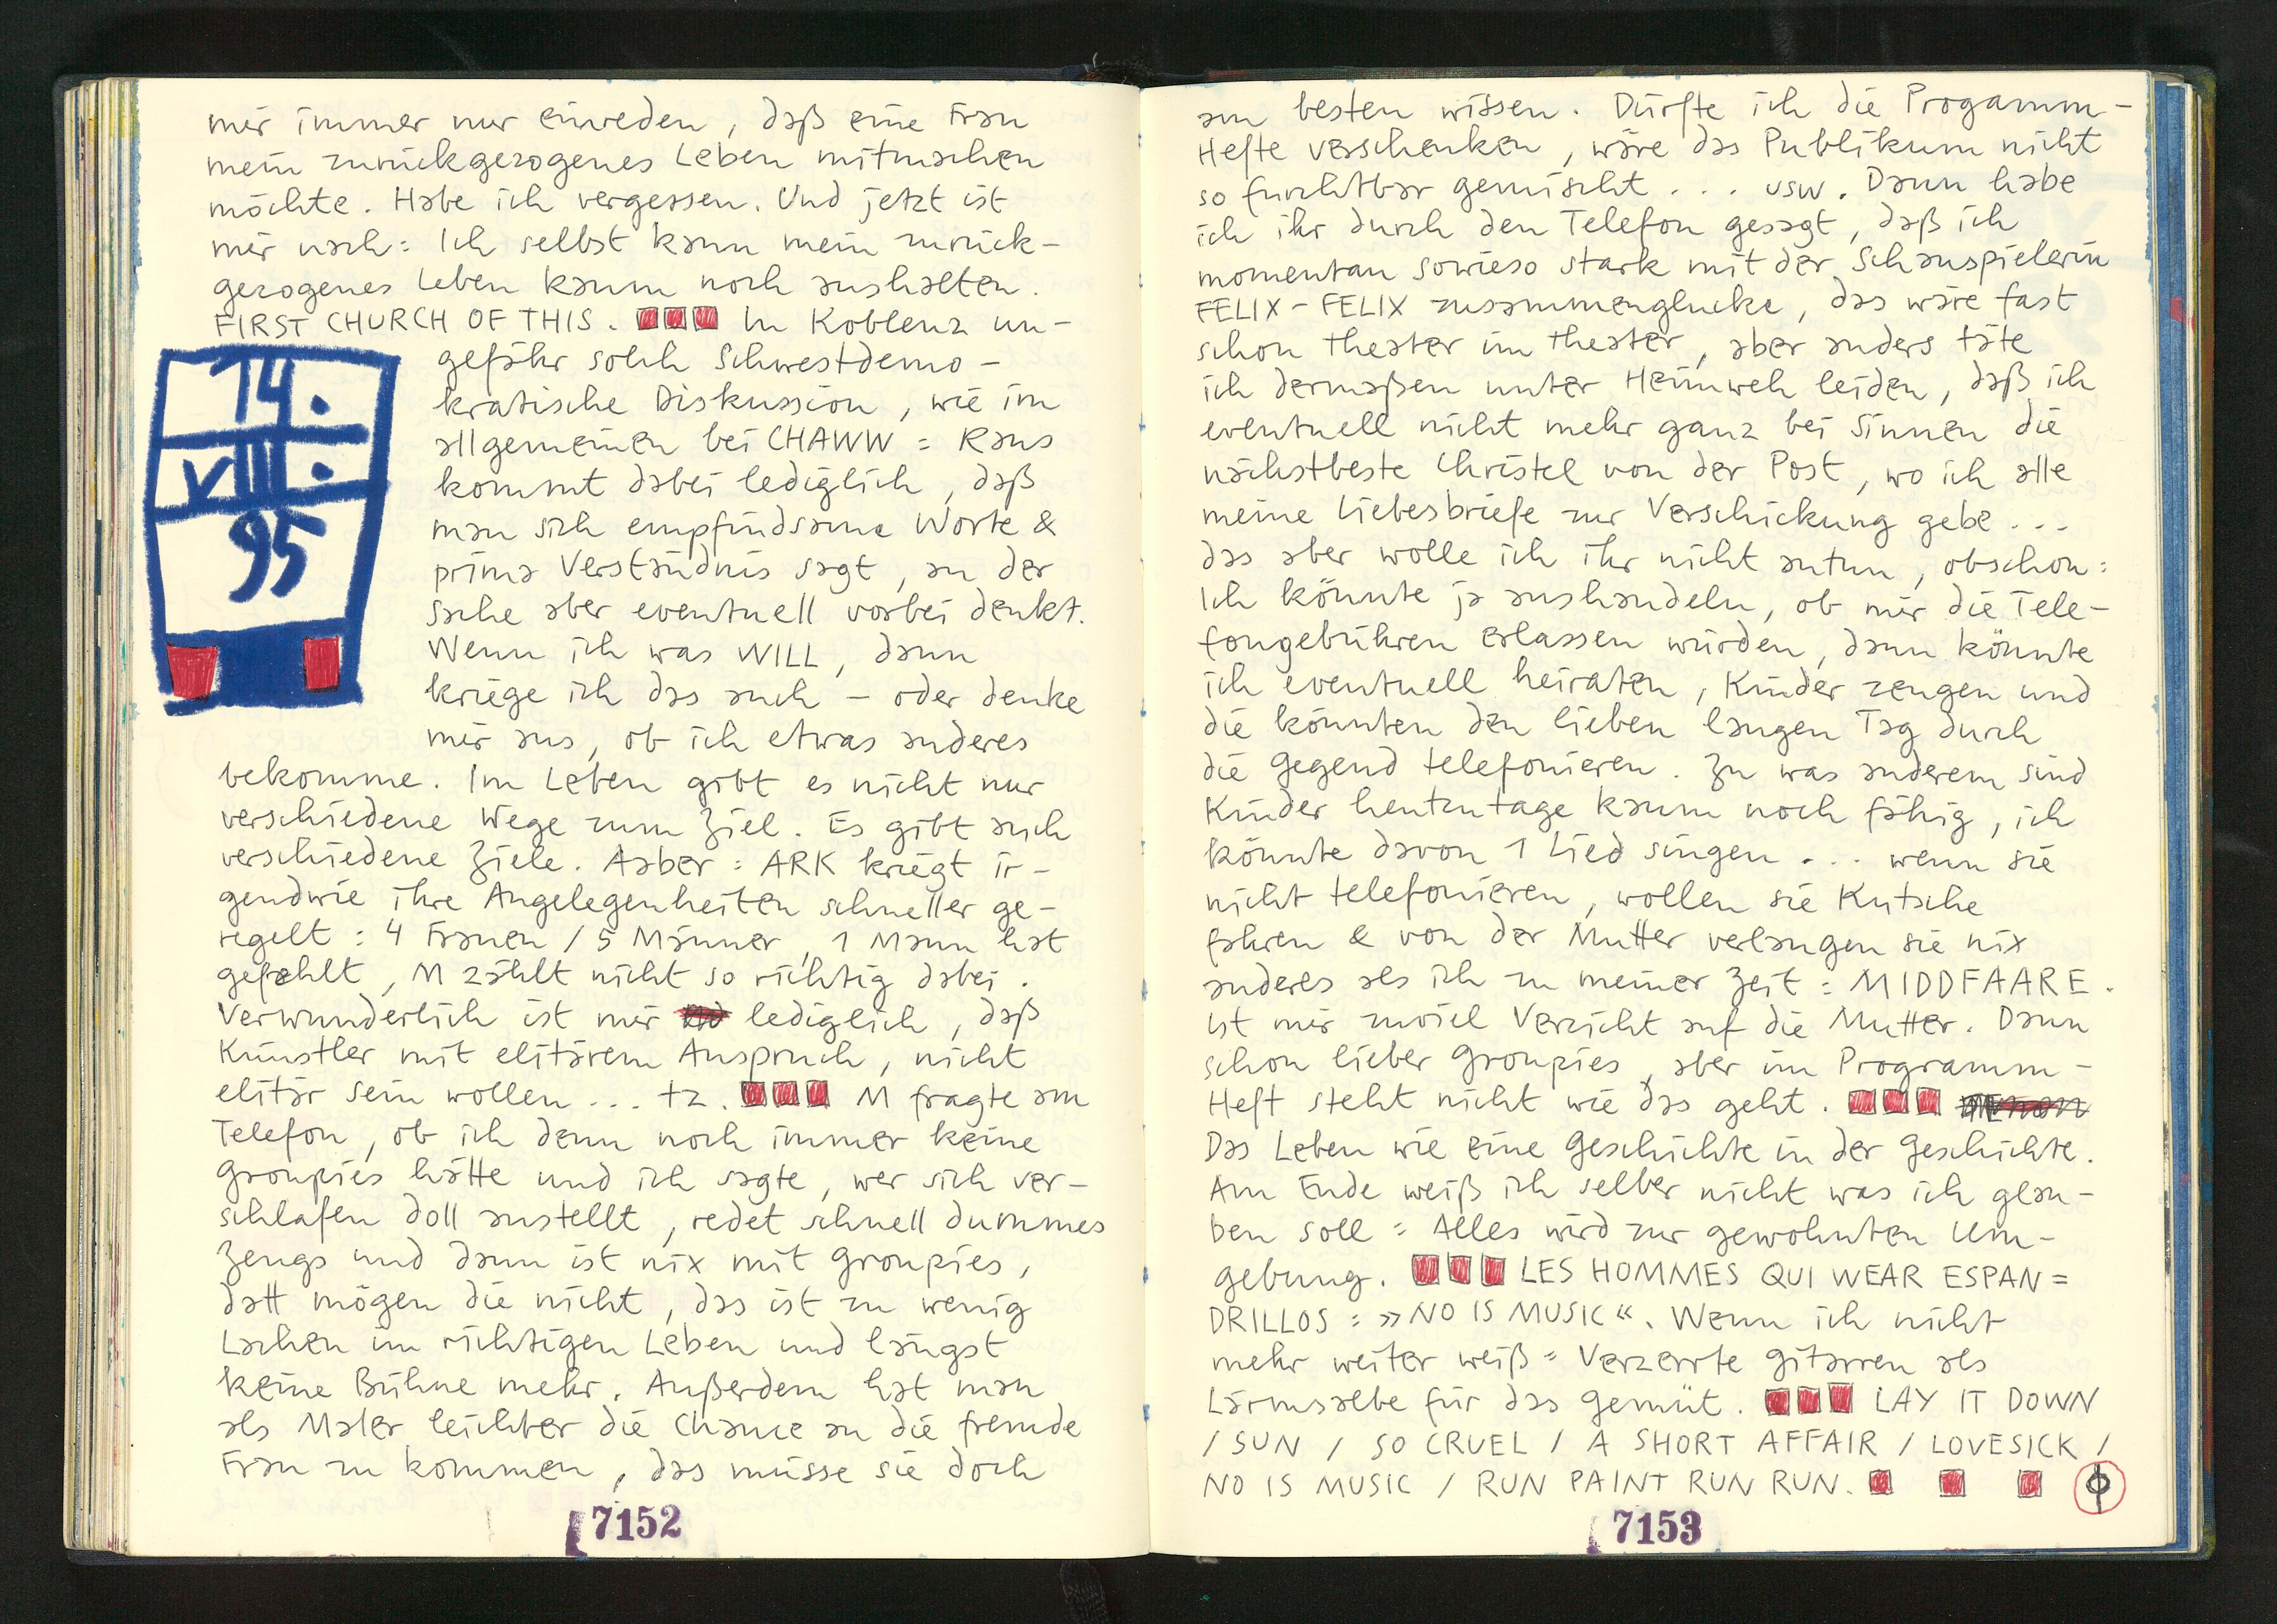 mir immer nur einreden, daß eine Frau
mein zurückgezogenes Leben mitmachen
möchte. Habe ich vergessen. Und jetzt ist
mir nach: Ich selbst kann mein zurück-
gezogenes Leben kaum noch aushalten.
FIRST CHURCH OF THIS. In Koblenz un-
14.
VIII.
95
gefähr solch Schwestdemo-
kratische Diskussion, wie im
allgemeinen bei CHAWW = Raus
kommt dabei lediglich, daß
man sich empfindsame Worte &
prima Verständnis sagt, an der
Sache aber eventuell vorbei denkt.
Wenn ich was WILL, dann
kriege ich das auch – oder denke
mir aus, ob ich etwas anderes
bekomme. Im Leben gibt es nicht nur
verschiedene Wege zum Ziel. Es gibt auch
verschiedene Ziele. Aaber: ARK kriegt ir-
gendwie ihre Angelegenheiten schneller ge-
regelt: 4 Frauen / 5 Männer, 1 Mann hat
gefehlt, M zählt nicht so richtig dabei.
Verwunderlich ist mir lediglich, daß
Künstler mit elitärem Anspruch, nicht
elitär sein wollen... tz. M fragte am
Telefon, ob ich denn noch immer keine
Groupies hätte und ich sagte, wer sich ver-
schlafen doll anstellt, redet schnell dummes
Zeugs und dann ist nix mit Groupies,
datt mögen die nicht, das ist zu wenig
Lachen im richtigen Leben und längst
keine Bühne mehr. Außerdem hat man
als Maler leichter die Chance an die fremde
Frau zu kommen, das müsse sie doch
7152
am besten wissen. Dürfte ich die Progamm-
Hefte verschenken, wäre das Publikum nicht
so furchtbar gemischt... usw. Dann habe
ich ihr durch den Telefon gesagt, daß ich
momentan sowieso stark mit der Schauspielerin
FELIX-FELIX zusammenglucke, das wäre fast
schon Theater im Theater, aber anders täte
ich dermaßen unter Heimweh leiden, daß ich
eventuell nicht mehr ganz bei Sinnen die
nächstbeste Christel von der Post, wo ich alle
meine Liebesbriefe zur Verschickung gebe...
das aber wolle ich ihr nicht antun, obschon:
Ich könnte ja aushandeln, ob mir die Tele-
fongebühren erlassen würden, dann könnte
ich eventuell heiraten, Kinder zeugen und
die könnten den lieben langen Tag durch
die Gegend telefonieren. Zu was anderem sind
Kinder heutzutage kaum noch fähig, ich
könnte davon 1 Lied singen... wenn sie
nicht telefonieren, wollen sie Kutsche
fahren & von der Mutter verlangen sie nix
anderes als ich zu meiner Zeit: MIDDFAARE.
Ist mir zuviel Verzicht auf die Mutter. Dann
schon lieber Groupies, aber im Programm-
Heft steht nicht wie das geht.
Das Leben wie eine Geschichte in der Geschichte.
Am Ende weiß ich selber nicht was ich glau-
ben soll = Alles wird zur gewohnten Um-
gebung. LES HOMMES QUI WEAR ESPAN=
DRILLOS: »NO IS MUSIC«. Wenn ich nicht
mehr weiter weiß = Verzerrte Gitarren als
Lärmsalbe für das Gemüt. LAY IT DOWN
/ SUN / SO CRUEL / A SHORT AFFAIR / LOVESICK /
NO IS MUSIC / RUN PAINT RUN RUN.
7153